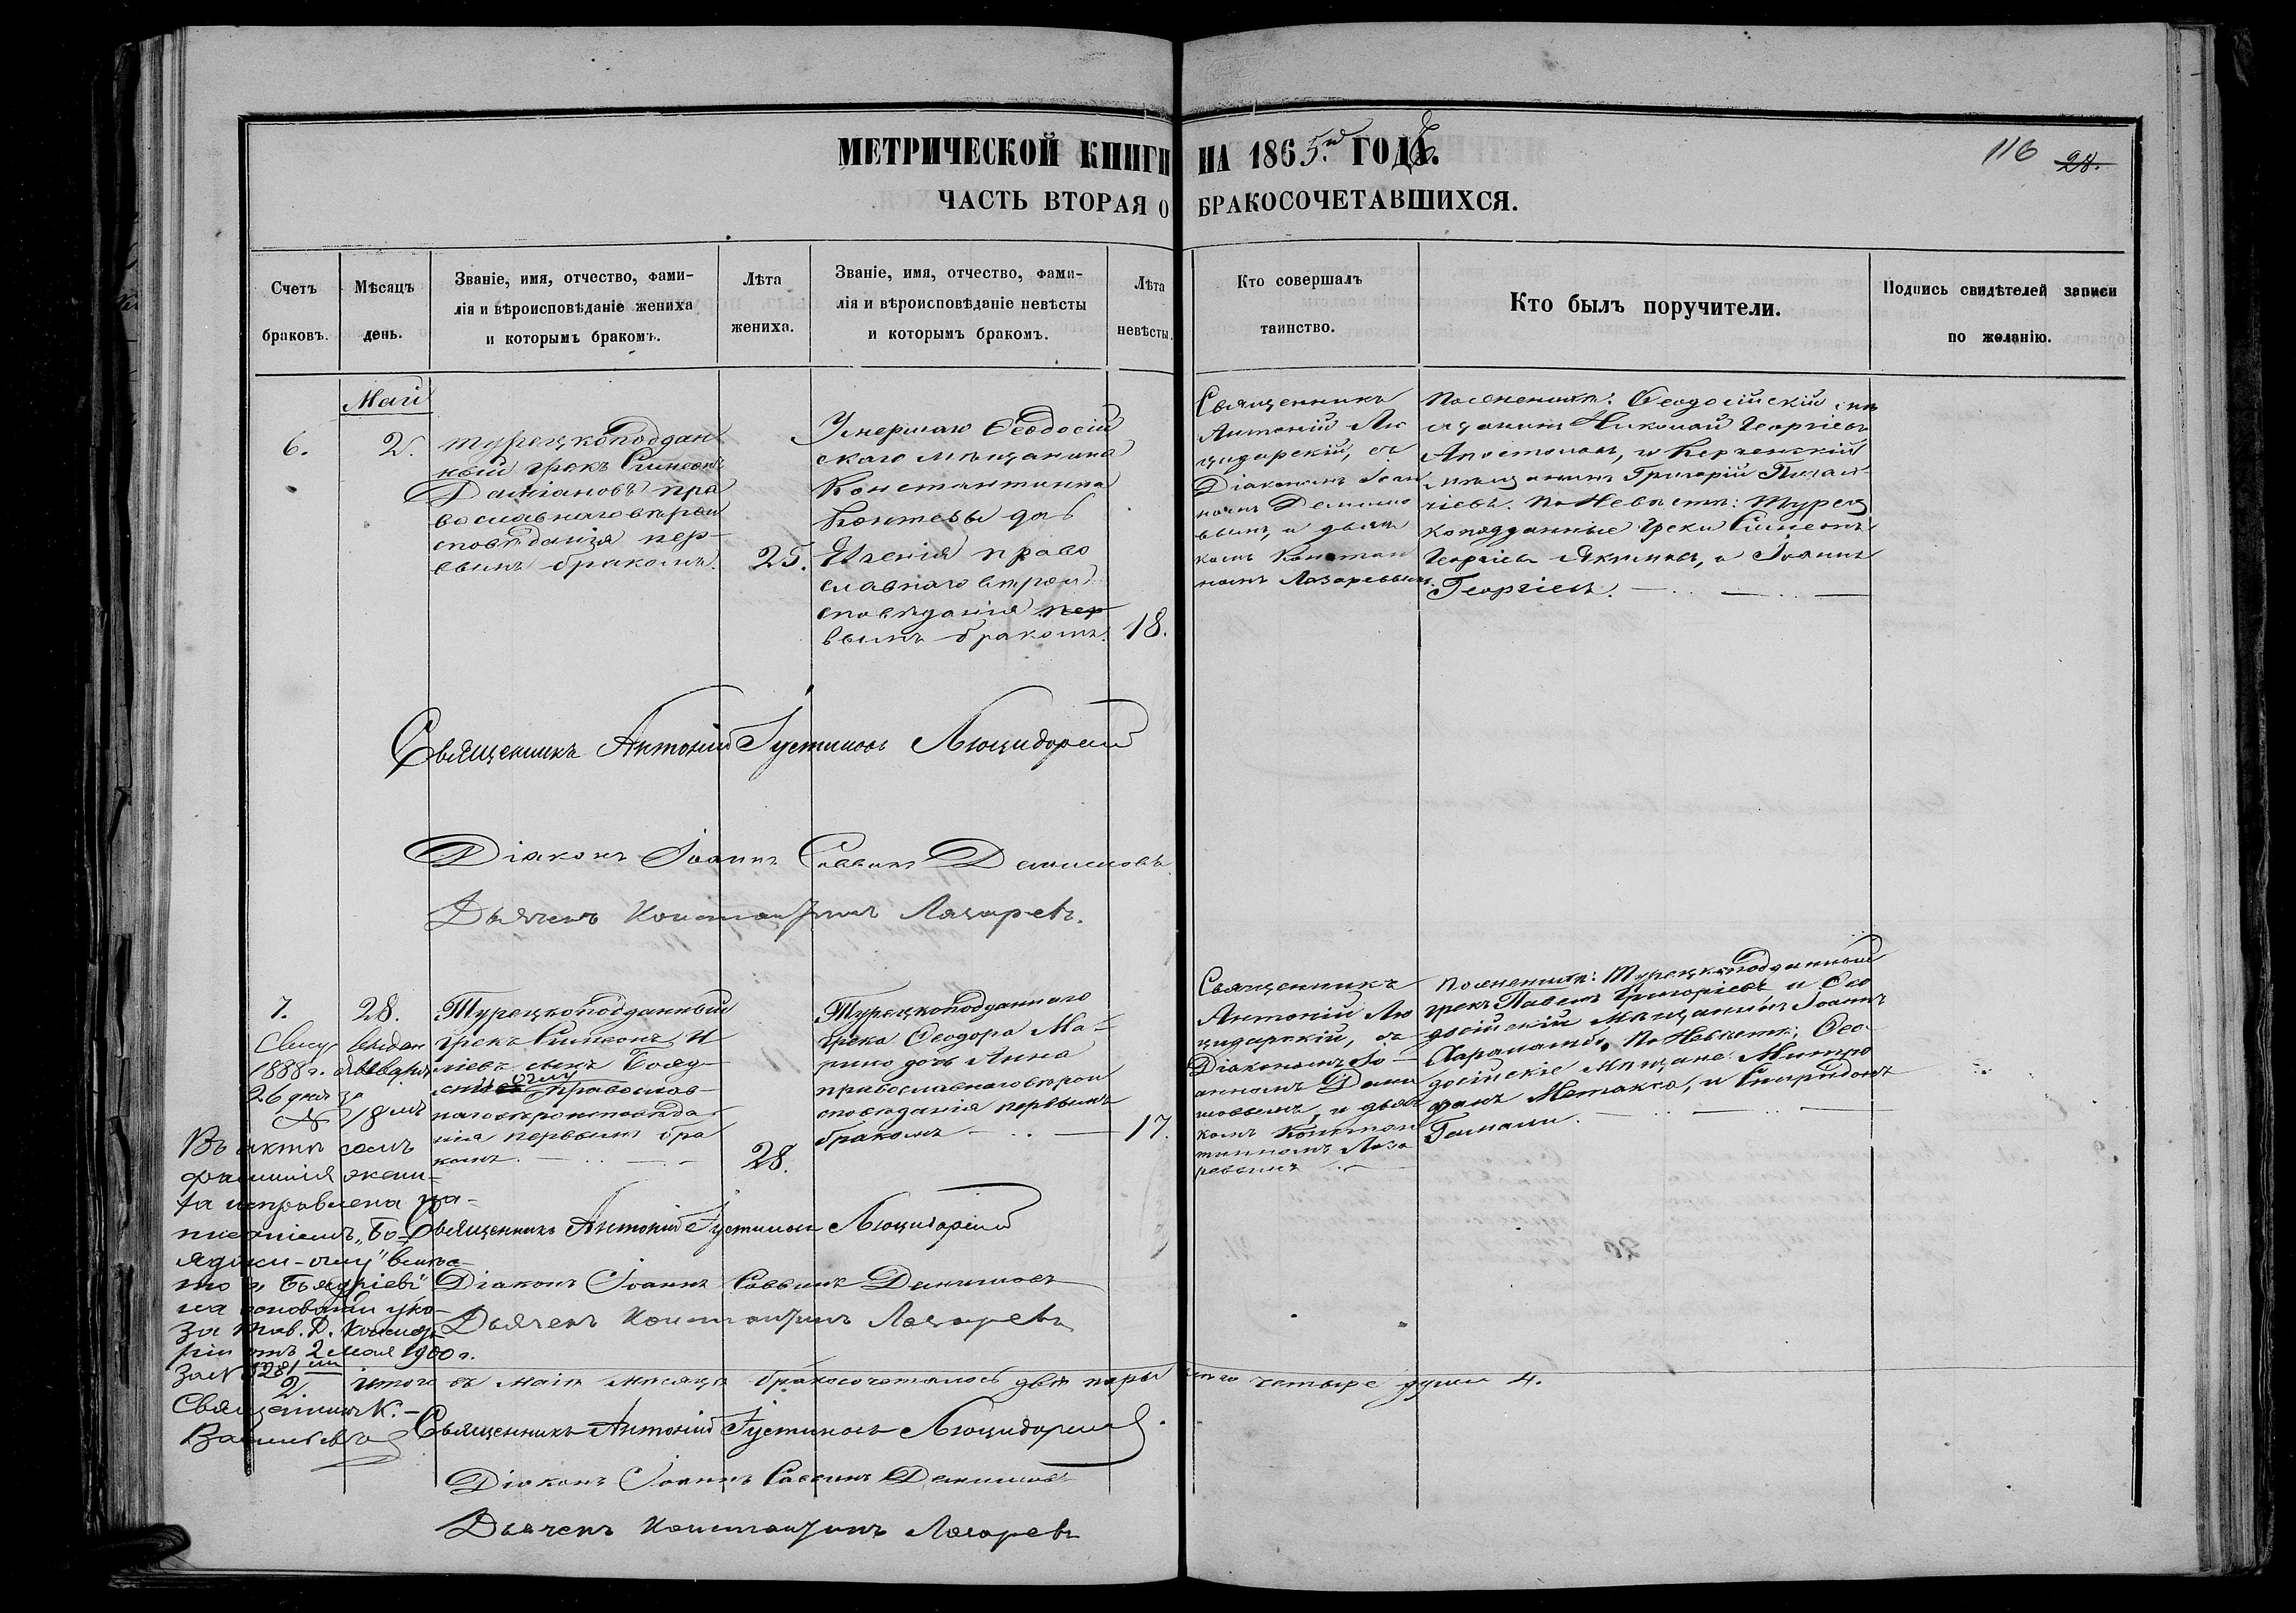 МЕТРИЧЕСКОЙ КНИГИ НА 1865й ГОДЪ.
116 28.
ЧАСТЬ ВТОРАЯ О БРАКОСОЧЕТАВШИХСЯ.
Счетъ
браковъ.
Мѣсяцъ
день.
Званіе, имя, отчество, фами-
лія и вѣроисповѣданіе жениха
и которымъ бракомъ.
Лѣта
жениха.
Званіе, имя, отчество, фами-
лія и вѣроисповѣданіе невѣсты
и которымъ бракомъ.
Лѣта
невѣсты.
Кто совершалъ
таинство.
Кто былъ поручители.
Подпись свидѣтелей записи
по желанію.
Маій
6.
2.
турецкоподдан
ный грекъ Симеонъ
Даміановъ пра
вославнаго вѣрои
сповѣданія пер-
вымъ бракомъ.
25.
Умершаго Ѳеодосій
скаго мѣщанина
Константина
дочь
Евгенія право
славнаго вѣрои
сповѣданія пер
вымъ бракомъ.
18.
Священникъ
Антоній Лю
цидарскій, съ
Діакономъ Іоан
номъ Демимо
вымъ, и дьяч
комъ Констан
номъ Лазаревымъ.
По женихѣ: Ѳеодосійскій мѣ
щанинъ Николай Георгіевъ
Апостоловъ, и Керченскій
мѣщанинъ Григорій
По Невѣстѣ: Турец
коподданные Греки Симеонъ
Георгіевъ Якимовъ, и Іоаннъ
Георгіевъ.
Священникъ Антоній Іустиновъ Люцидарскій
Діаконъ Іоаннъ Саввинъ Демимовъ
Дьячекъ Константинъ Лазаревъ.
7.
28.
Свид. выдан
1888 г. Января
26 дня за
№ 18мъ
Турецкоподданный
грекъ Симеонъ И
ліевъ сынъ Бояд-
жи оглу православ-
наго вѣроисповѣда
нія первымъ бра
комъ
28.
Турецкоподданнаго
грека Ѳеодора Ма-
рино дочь Анна
православнаго вѣрои
сповѣданія первымъ
бракомъ
17.
Священникъ
Антоній Лю
цидарскій, съ
Діакономъ Іо-
анномъ Деми
мовымъ, и дьяч
комъ Констан
тиномъ Лаза
ревымъ
По женихѣ: Турецкоподданный
грекъ Павелъ Григоріевъ и Ѳео
досійскій Мѣщанинъ Іоаннъ
Харалампо, По Невѣстѣ, Ѳео-
досійскіе Мѣщане: Митро
фанъ Метакса, и Спиридонъ
Гамали.
Въ актѣ семъ
фамилія жени-
ха исправлена на-
писаніемъ „Бо-
яджи-оглу" вмѣс-
то „Бояджіевъ"
на основаніи ука-
за Тав. Д. Консисто
ріи отъ 2 Мая 1900 г.
за № 5281мъ
Священникъ К.
Васильевъ
Священникъ Антоній Іустиновъ Люцидарскій
Діаконъ Іоаннъ Саввинъ Демимовъ
Дьячекъ Константинъ Лазаревъ
2. Итого въ Маіи мѣсяцѣ бракосочеталось двѣ пары всего четыре души 4.
Священникъ Антоній Іустиновъ Люцидарскій
Діаконъ Іоаннъ Саввинъ Демимовъ
Дьячекъ Константинъ Лазаревъ